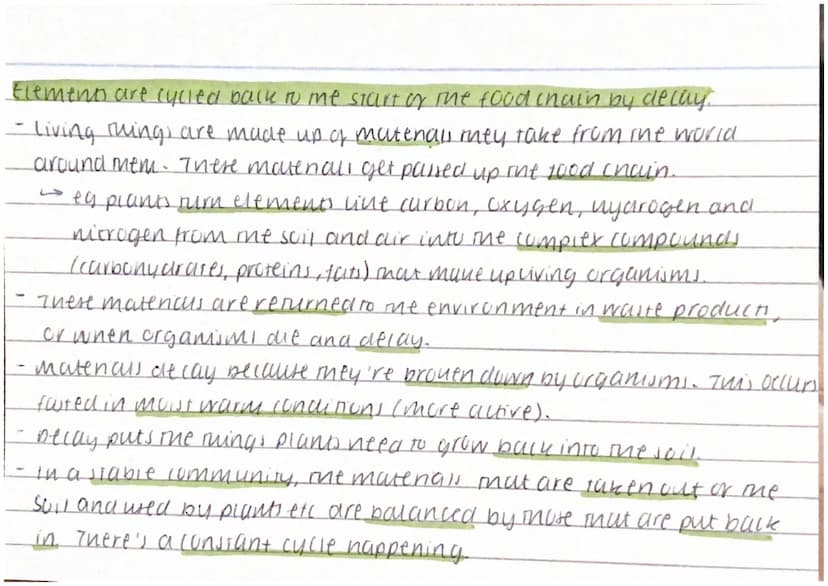 Elements are cycled back to the start of the food chain by decay.
- Living things are made up of materials they take from the world
around them. These materials get passed up the food chain.
↳ eg plants turn elements like carbon, oxygen, hydrogen and
nitrogen from the soil and air into the complex compounds
(carbohydrates, proteins, fats) that make up living organisms.
- These materials are returned to the environment in waste products,
or when organisms die and decay.
- Materials decay because they're broken down by organisms. This occurs
fasted in moist warm conditions (more active).
- Decay puts the things plants need to grow back into the soil.
- In a stable community, the materials that are taken out of the
soil and used by plants etc are balanced by those that are put back
in. There's a constant cycle happening.